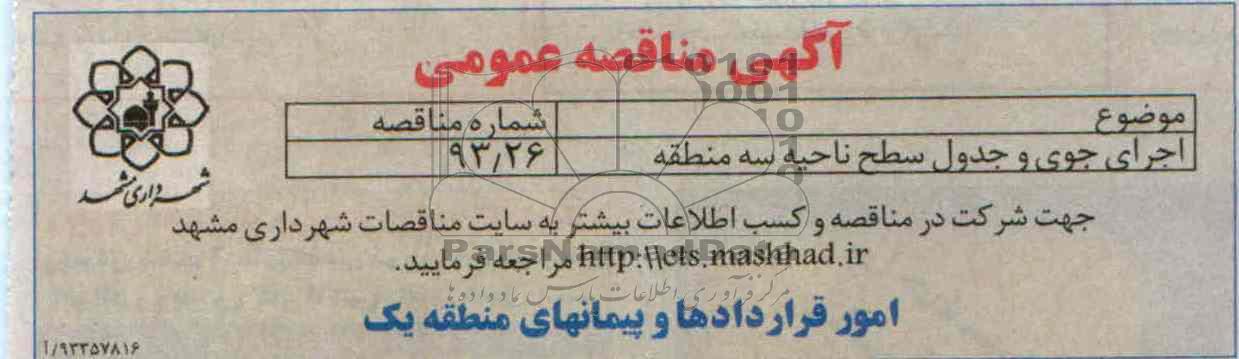 آگهی مناقصه عمومی
موضوع شماره مناقصه
اجرای جوی و جدول سطح ناحیه سه منطقه ۹۳٫۲۶
شهرداری مشهد
جهت شرکت در مناقصه و کسب اطلاعات بیشتر به سایت مناقصات شهرداری مشهد
http:\\ets.mashhad.ir مراجعه فرمایید.
ParsNamadData
مرکز فرآوری اطلاعات پارس نماد داده ها
امور قراردادها و پیمانهای منطقه یک
۹۳۳۵۷۸۱۶/آ